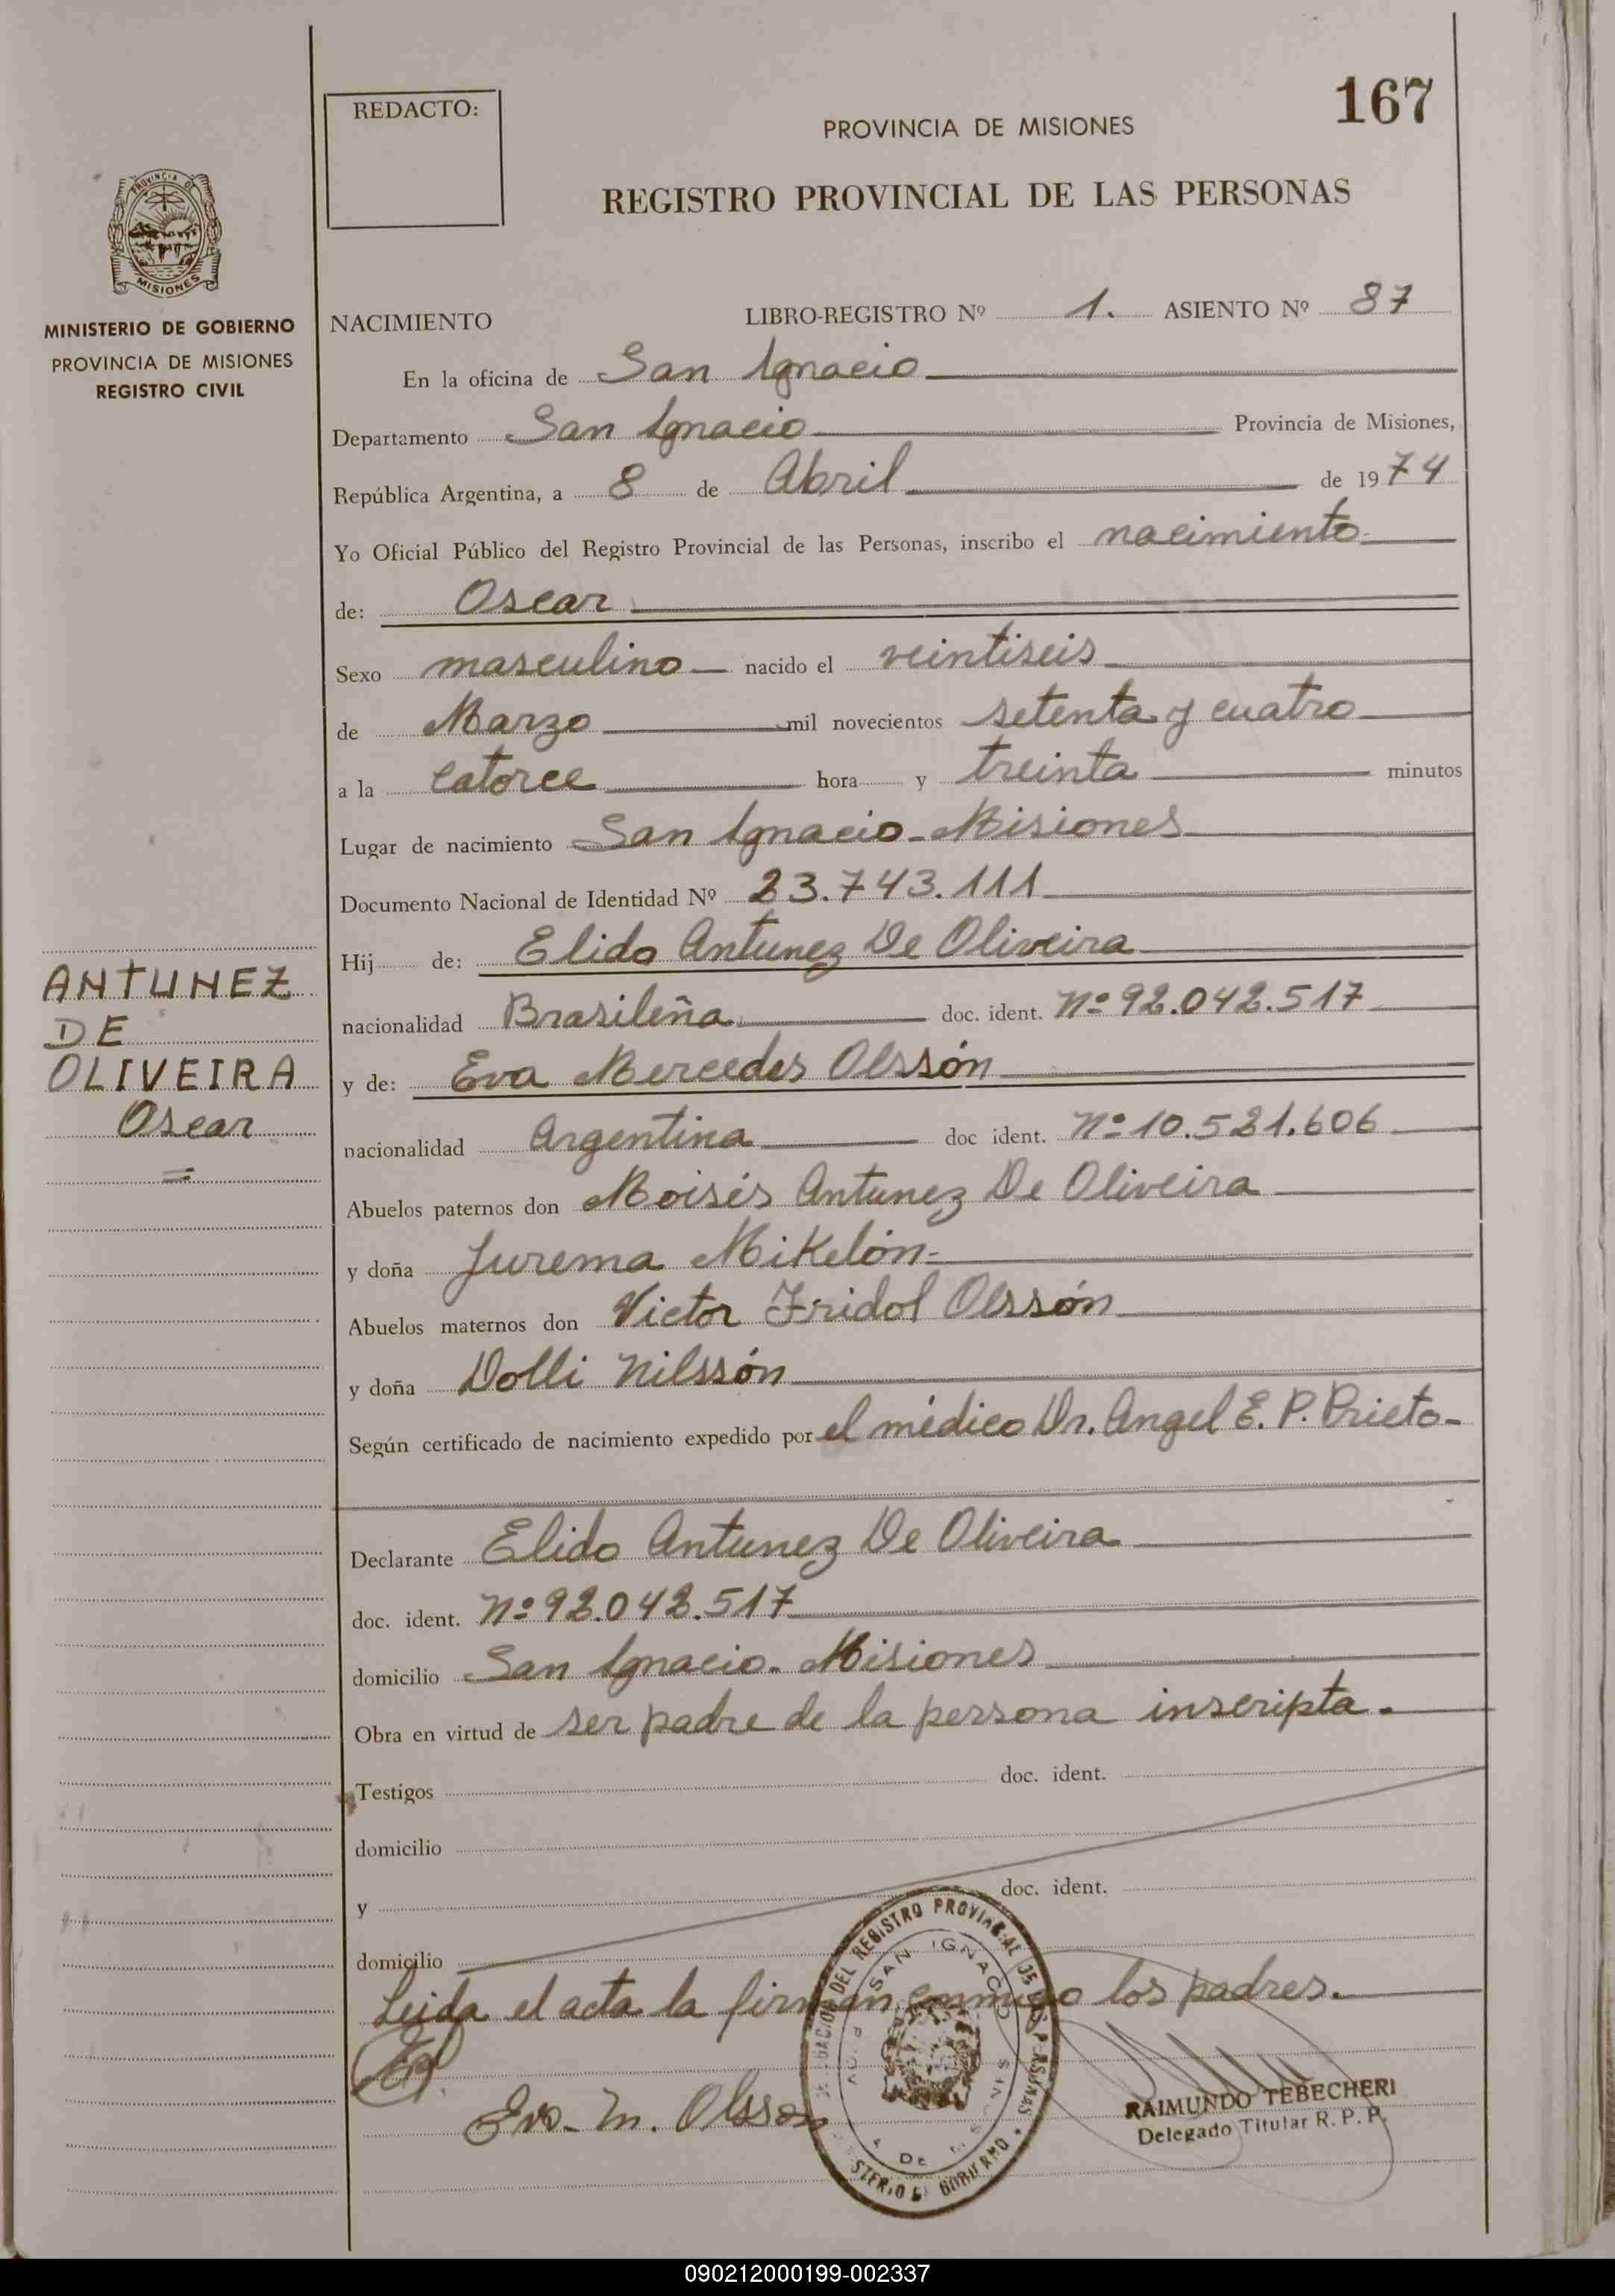 167
REDACTO:
PROVINCIA DE MISIONES
REGISTRO PROVINCIAL DE LAS PERSONAS
PROVINCIA DE
MISIONES
MINISTERIO DE GOBIERNO
PROVINCIA DE MISIONES
REGISTRO CIVIL
NACIMIENTO LIBRO-REGISTRO Nº 1. ASIENTO Nº 87
En la oficina de San Ignacio
Departamento San Ignacio Provincia de Misiones,
República Argentina, a 8 de Abril de 1974
Yo Oficial Público del Registro Provincial de las Personas, inscribo el nacimiento
de: Oscar
Sexo masculino nacido el veintiseis
de Marzo mil novecientos setenta y cuatro
a la catorce hora y treinta minutos
Lugar de nacimiento San Ignacio - Misiones
Documento Nacional de Identidad Nº 23.743.111
Hij de: Elido Antunez De Oliveira
nacionalidad Brasileña doc. ident. Nº 92.042.517
y de: Eva Mercedes Olssón
nacionalidad Argentina doc ident. Nº 10.521.606
Abuelos paternos don Moisés Antunez De Oliveira
y doña Jurema Mikelón
Abuelos maternos don Victor Fridol Olssón
y doña Dolli Nilssón
Según certificado de nacimiento expedido por el médico Dr. Angel E. P. Prieto
Declarante Elido Antunez De Oliveira
doc. ident. Nº 92.042.517
domicilio San Ignacio. Misiones
Obra en virtud de ser padre de la persona inscripta.
Testigos doc. ident.
domicilio
y doc. ident.
domicilio
Leida el acta la firman conmigo los padres.
Eva M. Olsson
RAIMUNDO TEBECHERI
Delegado Titular R. P. P.
DEL REGISTRO PROVINCIAL DE LAS PERSONAS
SAN IGNACIO
ANTUNEZ
DE
OLIVEIRA
Oscar
090212000199-002337